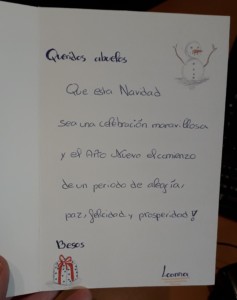 Queridos abuelos
Que esta Navidad
sea una celebración maravillosa
y el Año Nuevo el comienzo
de un periodo de alegría,
paz, felicidad y prosperidad!
Besos
Leanna